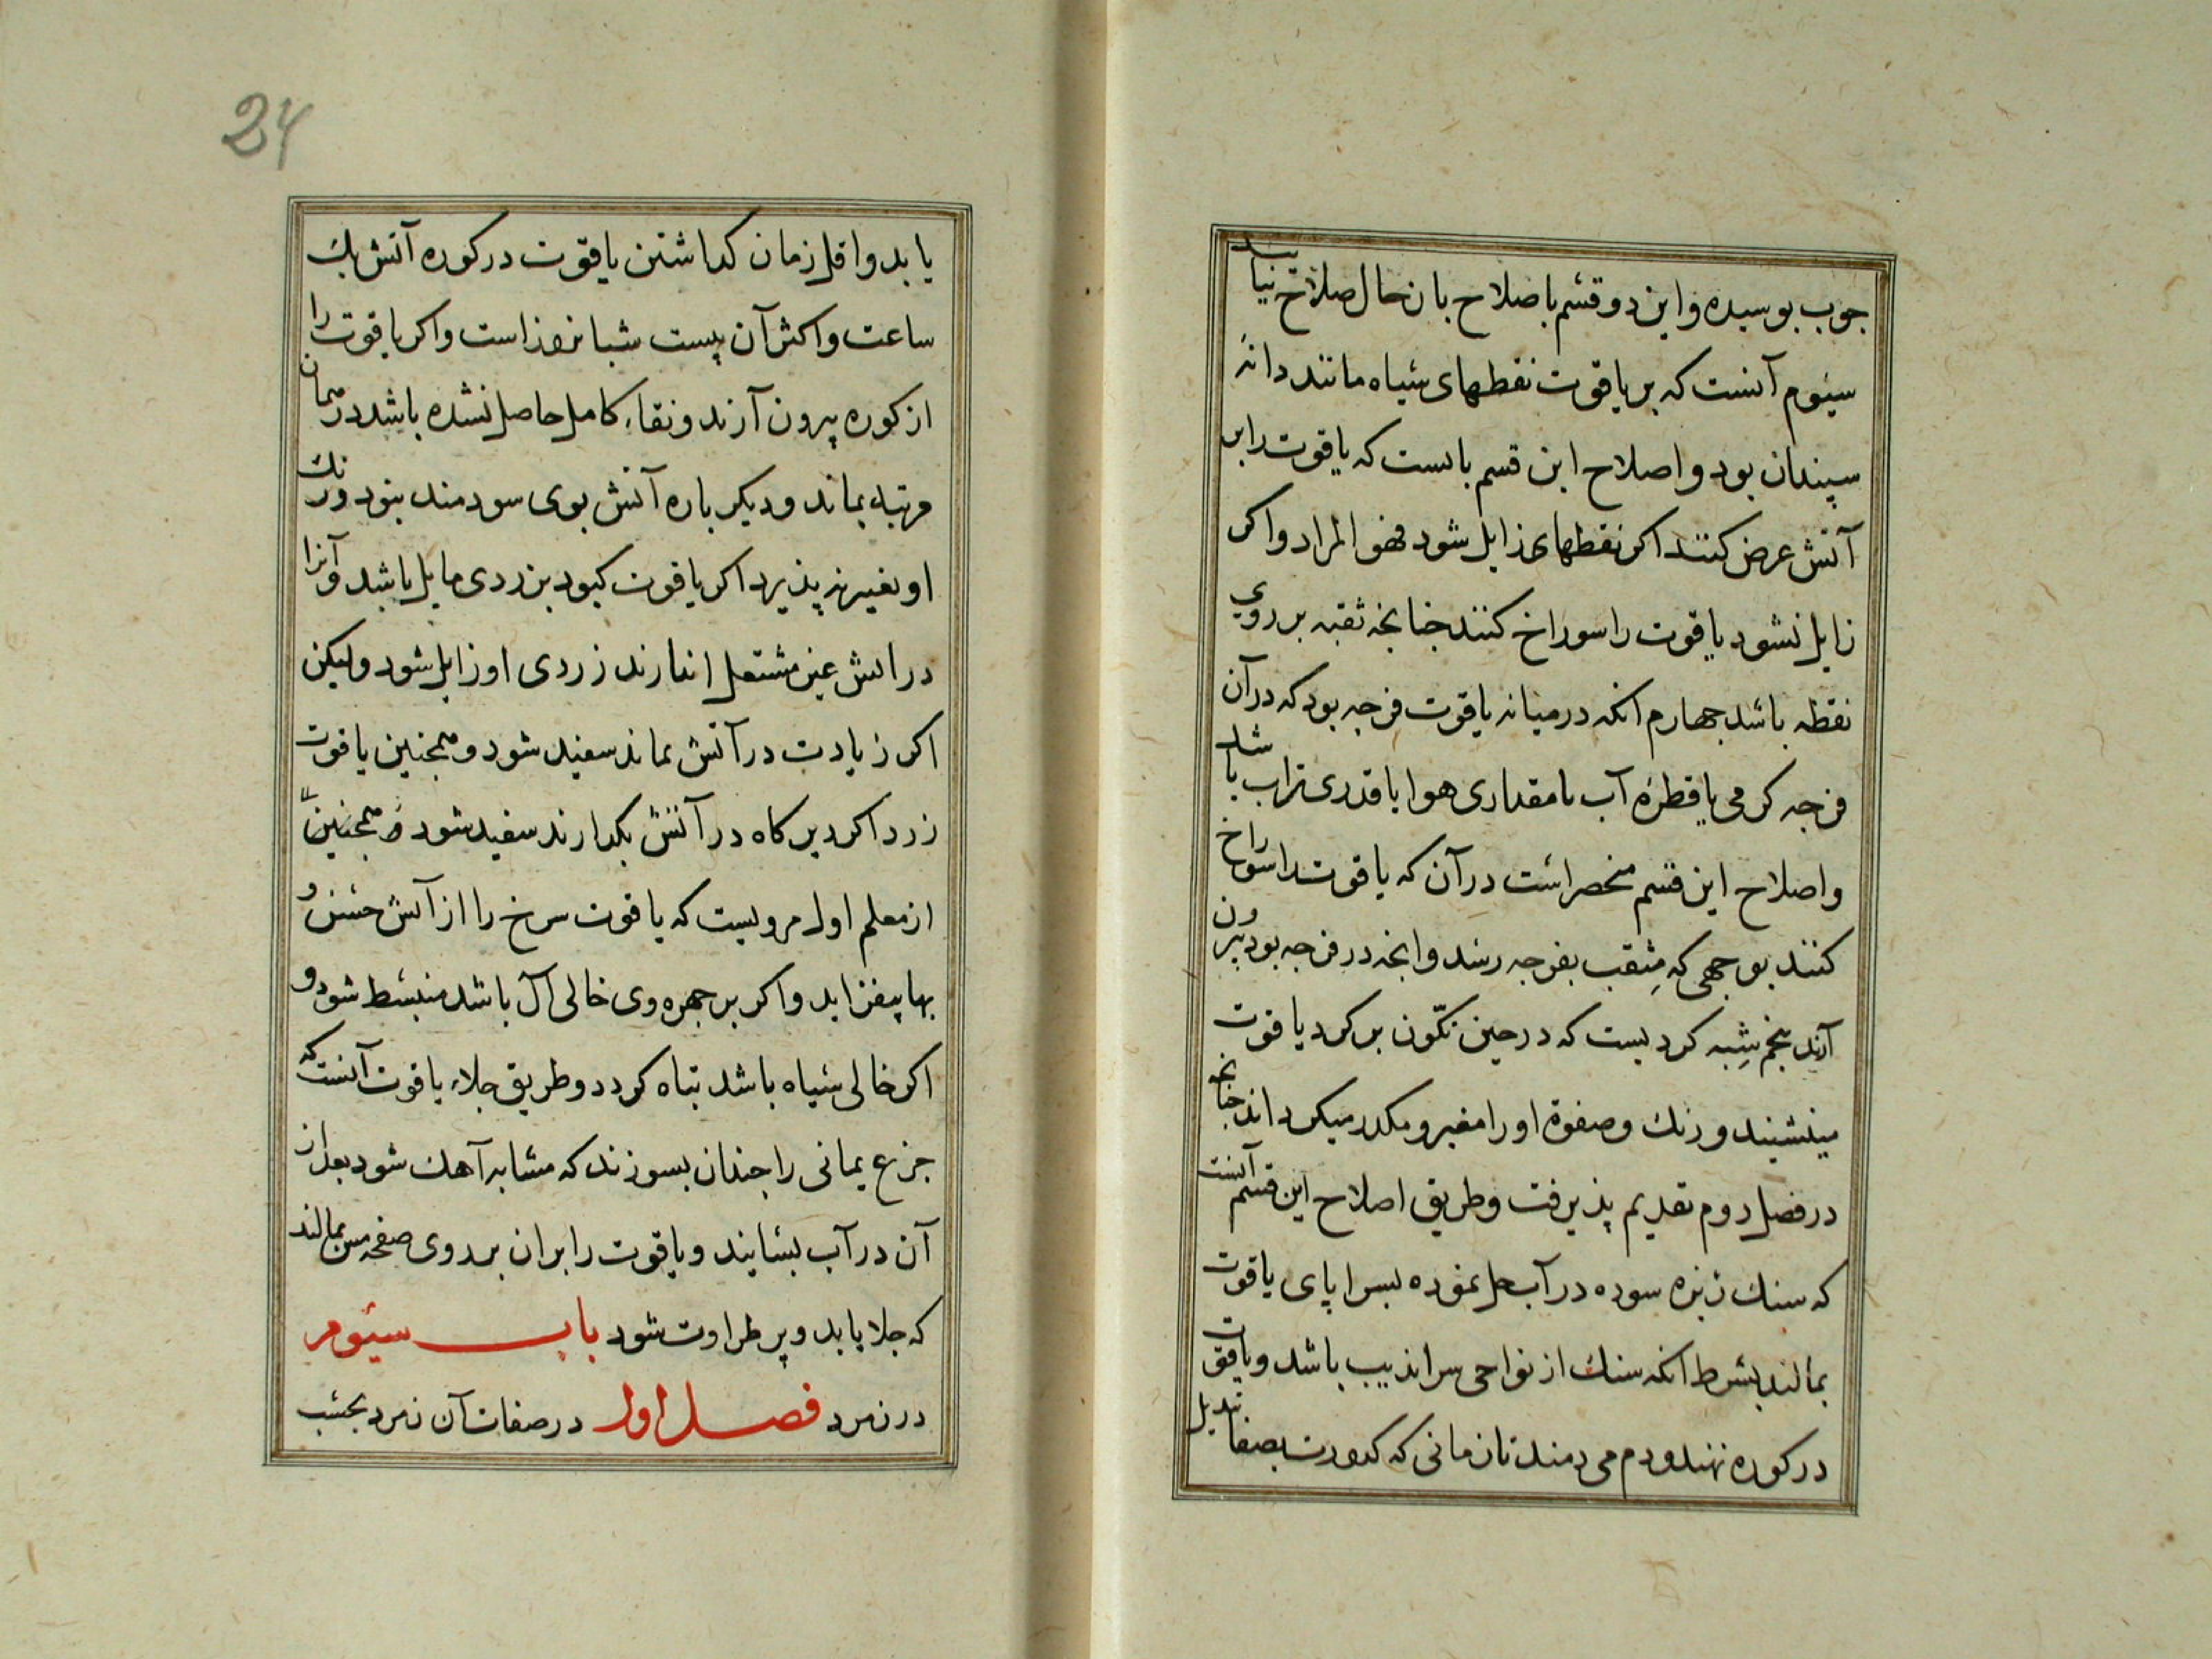 جوب بوسیده و این دو قسم باصلاح بازن حال صلاح نیابد
سیّوم آنست که بر یاقوت نقطهای سیاه مانند دانهٔ
سپندان بود و اصلاح این قسم بانست که یاقوت را بر
آتش عرض کنند اکر نقطهای زایل شود فهو المراد و اکر
زایل نشود یاقوت را سوراخ کنند جنانجه ثقبه بر روی
نقطه باشد جهارم انکه در میانه یاقوت فرجه بود که در آن
فرجه کرمی یا قطرهٔ آب یا مقداری هوا یا قدری تراب باشد
و اصلاح این قسم منحصر است در آن که یاقوت را سوراخ
کنند بوجهی که مِثقب بفرجه رسد و انجه در فرجه بود بیرون
آرند بنجم شِبه کردیست که در حین تکّون بر کرد یاقوت
مینشیند و رنك و صفوة او را مغیر و مکدر میکرداند جنانجه
در فصل دوم تقدیم پذیرفت و طریق اصلاح این قسم آنست
که سنك ریزه سوده در آب حل نموده بسراپای یاقوت
بمالند بشرط انکه سنك از نواحی سراندیب باشد و یاقوت
در کوره نهند و دم می دمند تا زمانی که کدورت بصفا تبدیل
24
یابد و اقل زمان کداشتن یاقوت در کوره آتش یك
ساعت و اکثر آن بیست شبانروز است و اکر یاقوت را
از کوره بیرون آرند و نقاء کامل حاصل نشده باشد در همان
مرتبه بماند و دیکر باره آتش بوی سودمند بنود و رنك
او تغییر نپذیرد اکر یاقوت کبود بزردی مایل باشد و آنرا
در اتش عین مشتعل اندازند زردی او زایل شود و لیکن
اکر زیادت در آتش بماند سفید شود و همجنین یاقوت
زرد اکر دیر کاه در آتش بکدارند سفید شود و همجنین
از معلم اول مرویست که یاقوت سرخ را از آتش حسن و
بها بیفزاید و اکر بر جهره وی خالی آل باشد منبسط شود و
اکر خالی سیاه باشد تباه کردد و طریق جلاء یاقوت آنست که
جزع یمانی را جندان بسوزند که مشابه آهك شود بعد از
آن در آب بسایند و یاقوت را بران بر روی صفحه مس بمالند
که جلا یابد و پر طراوت شود باب سیّوم
در زمرد فصل اول در صفات آن زمرد بحسب